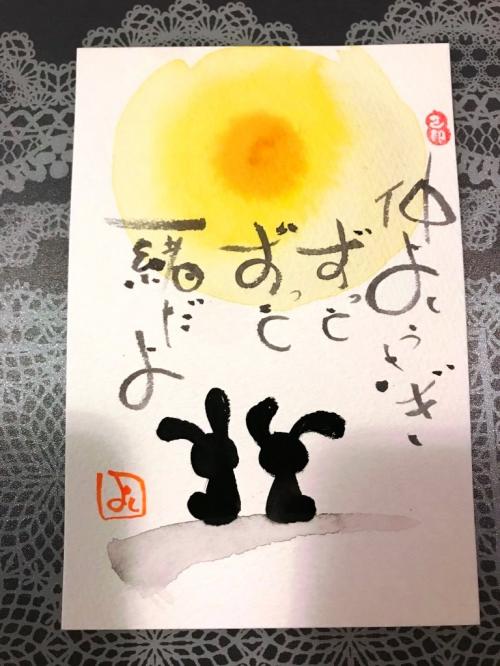 仲よしうさぎ
ずっと
ずっと
一緒だよ
よし